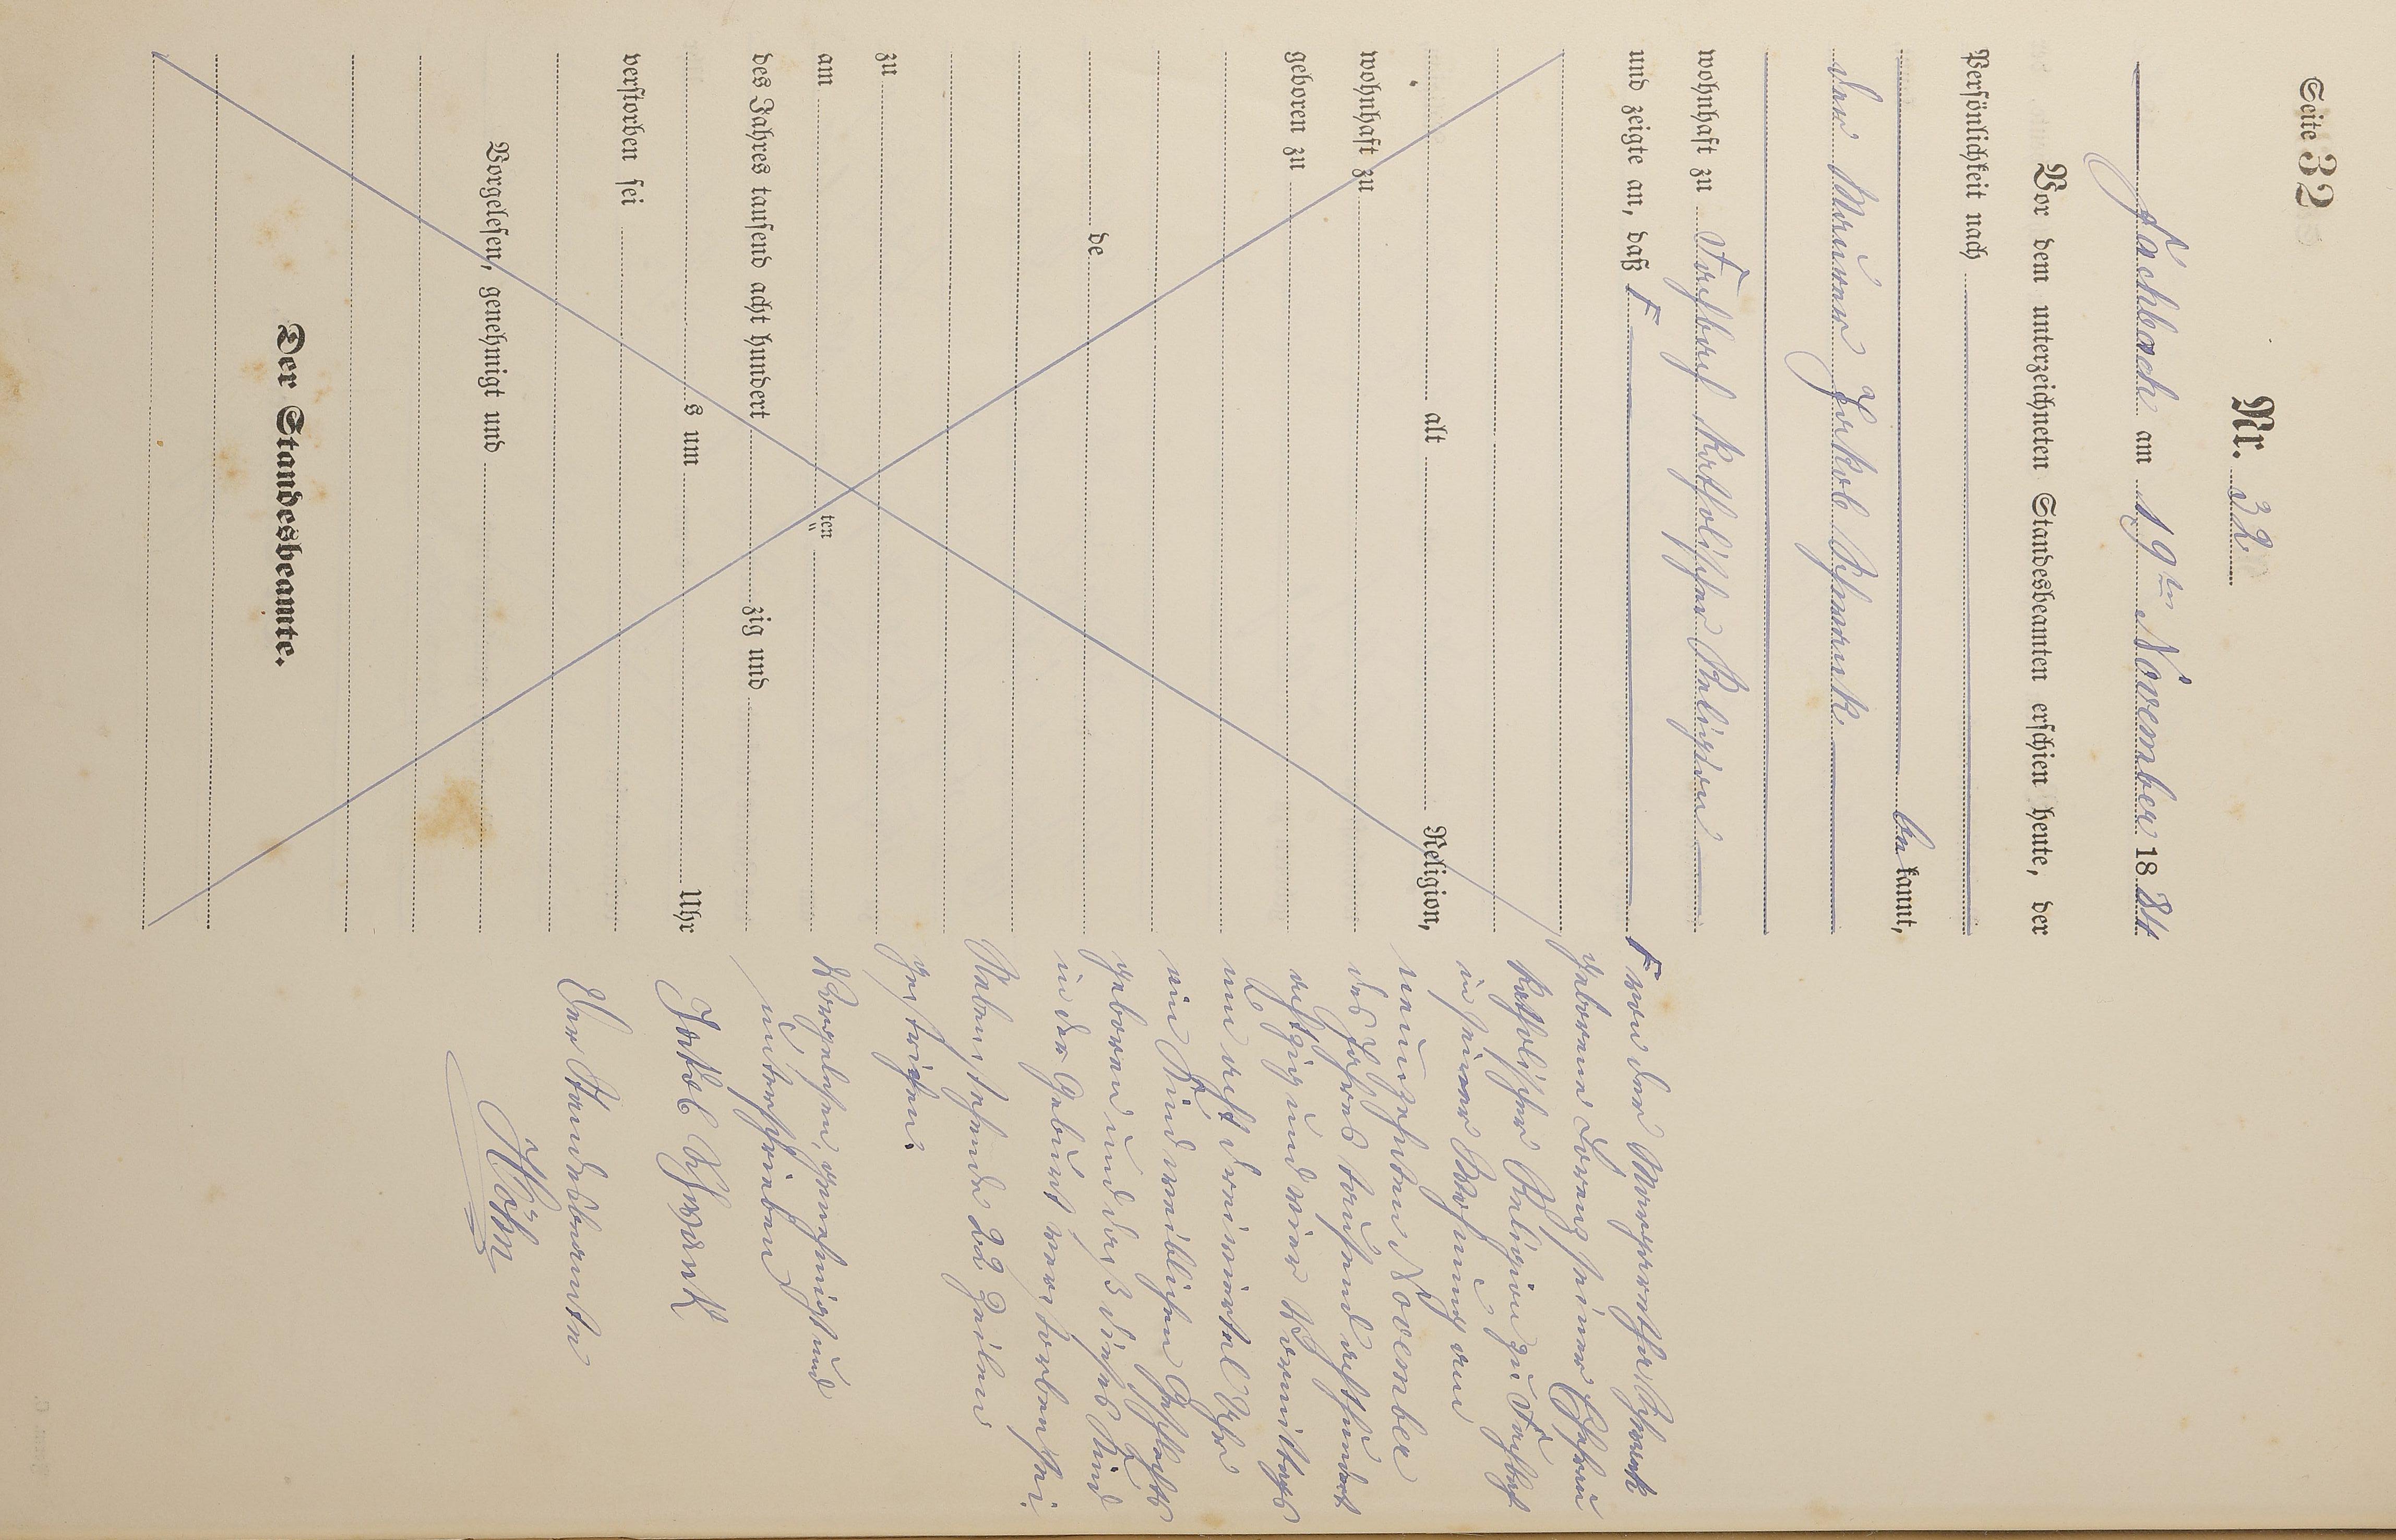 Seite 32
Nr. 32
Fachbach am 19ten November 1884
Vor dem unterzeichneten Standesbeamten erschien heute, der
Persönlichkeit nach
bekannt,
der Maurer Jakob Schwank
wohnhaft zu Fachbach katholischer Religion
und zeigte an, daß F
alt Religion,
wohnhaft zu
geboren zu
de
zu
am ten
des Jahres tausend acht hundert zig und
s um Uhr
verstorben sei
Vorgelesen, genehmigt und
Der Standesbeamte.
F von der Margaretha Schwank
geborene Lorenz seiner Ehefrau
katholischer Religion zu Fachbach
in seiner Wohnung am
neunzehnten November
des Jahres tausend achthundert
achtzig und vier Vormittags
um acht dreiviertel Uhr
ein Kind weiblichen Geschlechts
geboren und daß dieses Kind
in der Geburt verstorben sei
Nebenstehende 22 Zeilen
gestrichen.
Vorgelesen, genehmigt und
unterschrieben
Jakob Schwank
Der Standesbeamte
Höhn